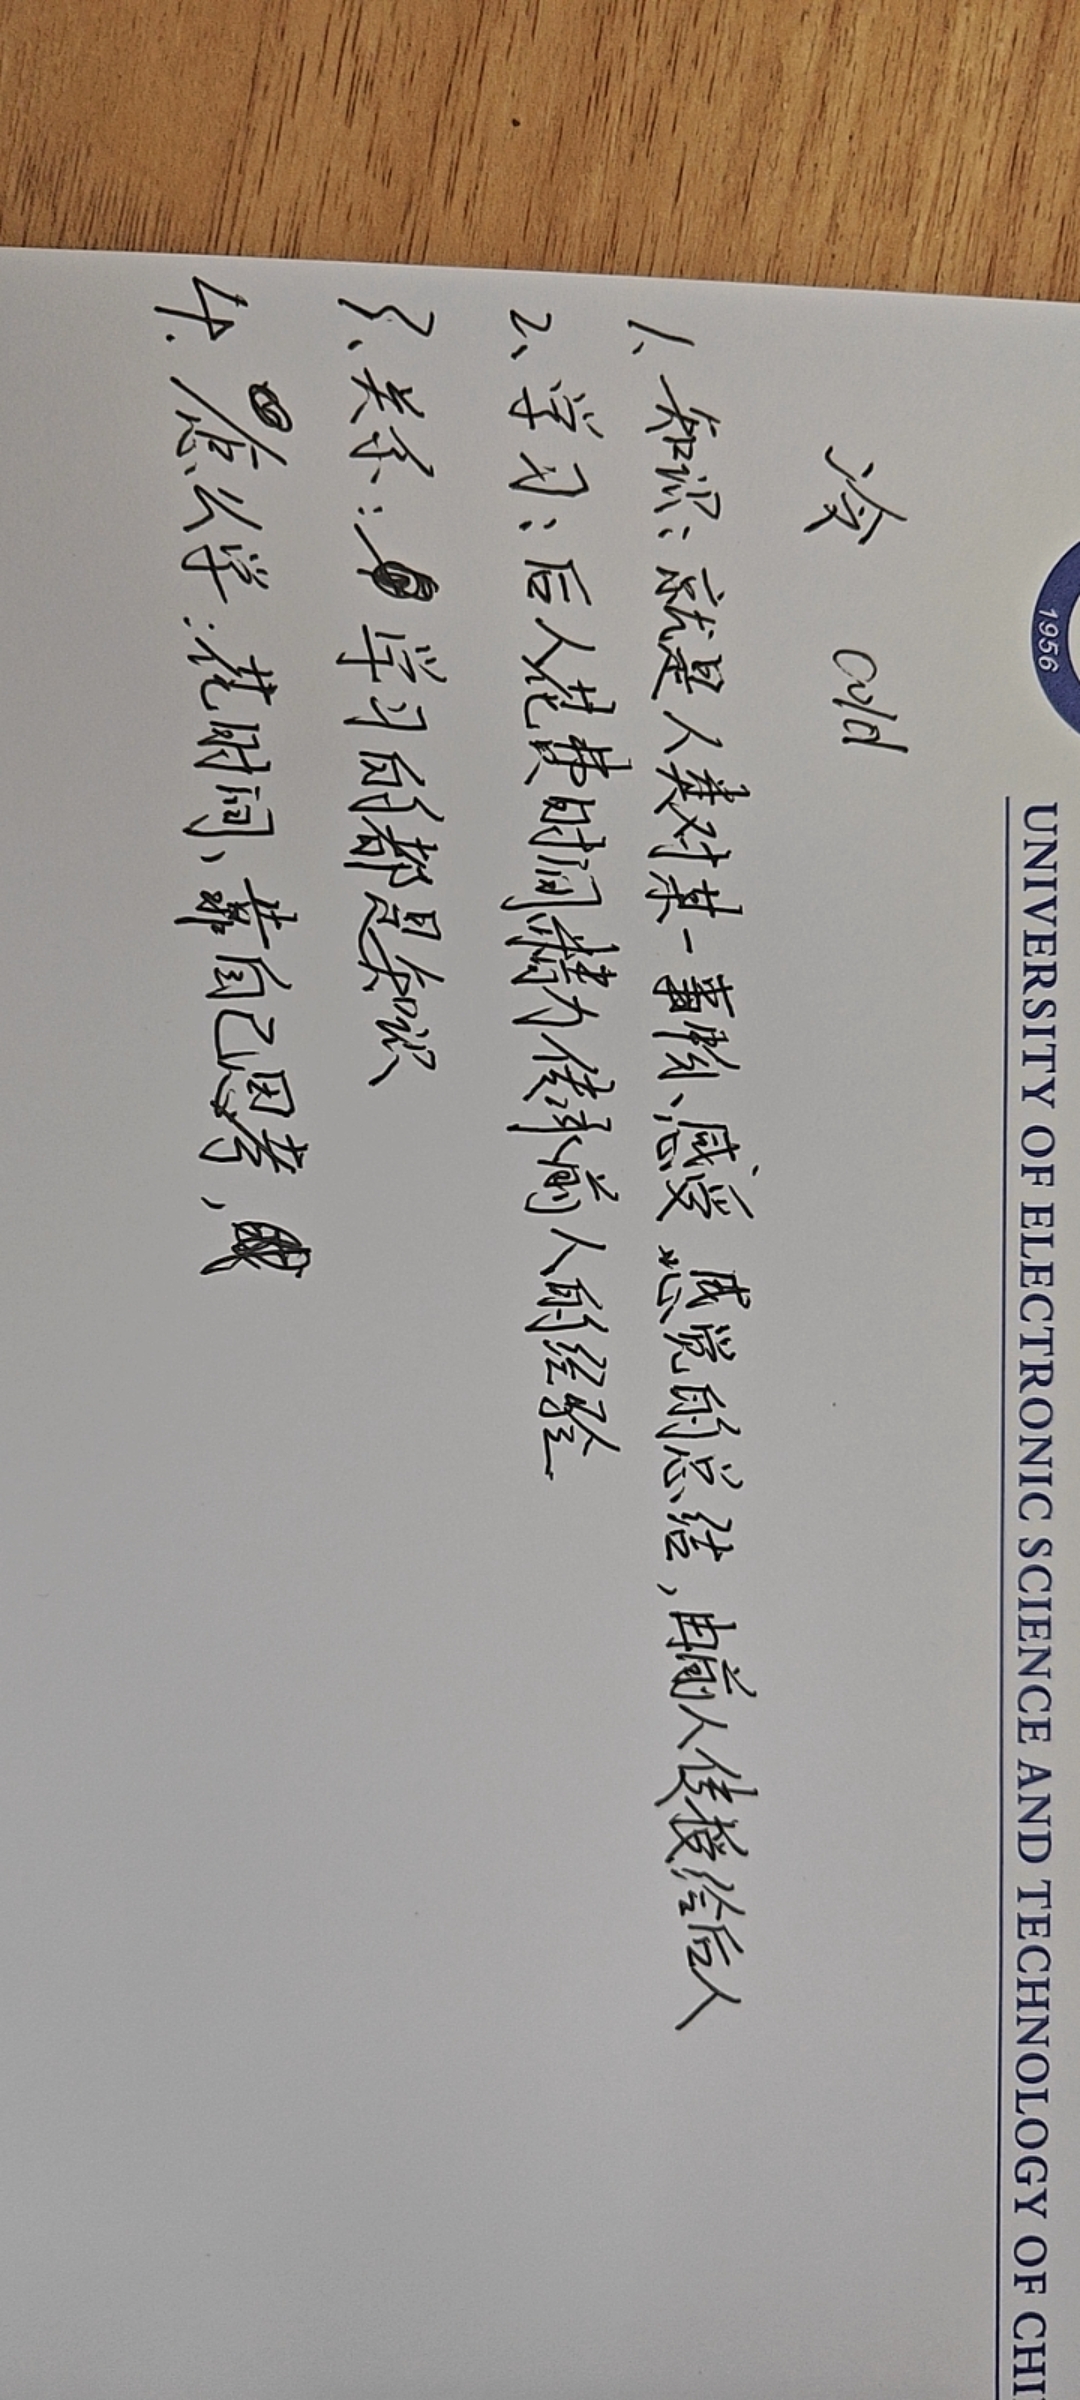 1956
UNIVERSITY OF ELECTRONIC SCIENCE AND TECHNOLOGY OF CHI
冷 cold
1、知识：就是人类对某一事物、感受、感觉的总结，由前人传授给后人
2、学习：后人花费时间精力传承前人的经验
3、关系：学习的都是知识
4.怎么学：花时间、靠自己思考，